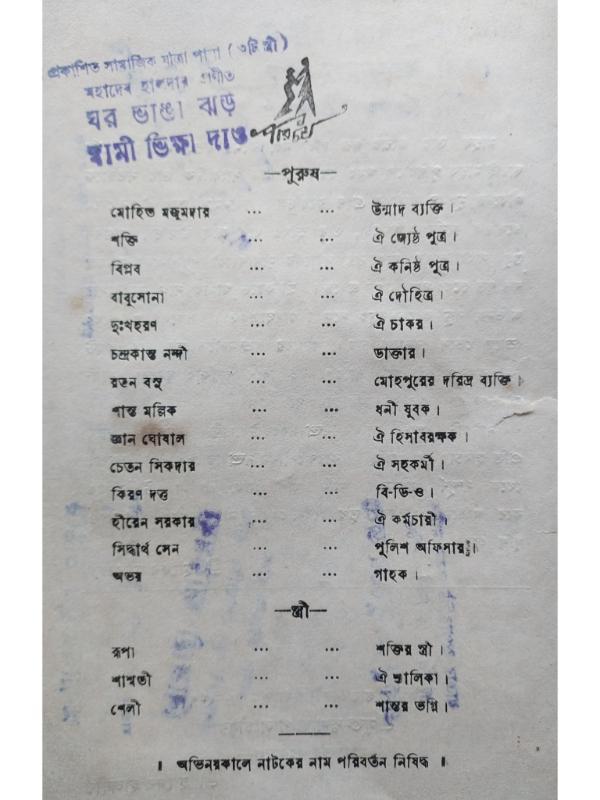 প্রকাশিত সামাজিক যাত্রা পালা (৩টি স্ত্রী)
মহাদেব হালদার প্রণীত
ঘর ভাঙা ঝড়
স্বামী ভিক্ষা দাও
পরিচয়
—পুরুষ—
মোহিত মজুমদার ... ... উন্মাদ ব্যক্তি।
শক্তি ... ... ঐ জ্যেষ্ঠ পুত্র।
বিপ্লব ... ... ঐ কনিষ্ঠ পুত্র।
বাবুসোনা ... ... ঐ দৌহিত্র।
দুঃখহরণ ... ... ঐ চাকর।
চন্দ্রকান্ত নন্দী ... ... ডাক্তার।
রতন বসু ... ... মোহপুরের দরিদ্র ব্যক্তি।
শান্ত মল্লিক ... ... ধনী যুবক।
জ্ঞান ঘোষাল ... ... ঐ হিসাবরক্ষক।
চেতন সিকদার ... ... ঐ সহকর্মী।
কিরণ দত্ত ... ... বি-ডি-ও।
হীরেন সরকার ... ... ঐ কর্মচারী।
সিদ্ধার্থ সেন ... ... পুলিশ অফিসার।
অভয় ... ... গাহক।
—স্ত্রী—
রূপা ... ... শক্তির স্ত্রী।
শাশ্বতী ... ... ঐ শ্যালিকা।
শেলী ... ... শান্তর ভগ্নি।
। অভিনয়কালে নাটকের নাম পরিবর্তন নিষিদ্ধ ।